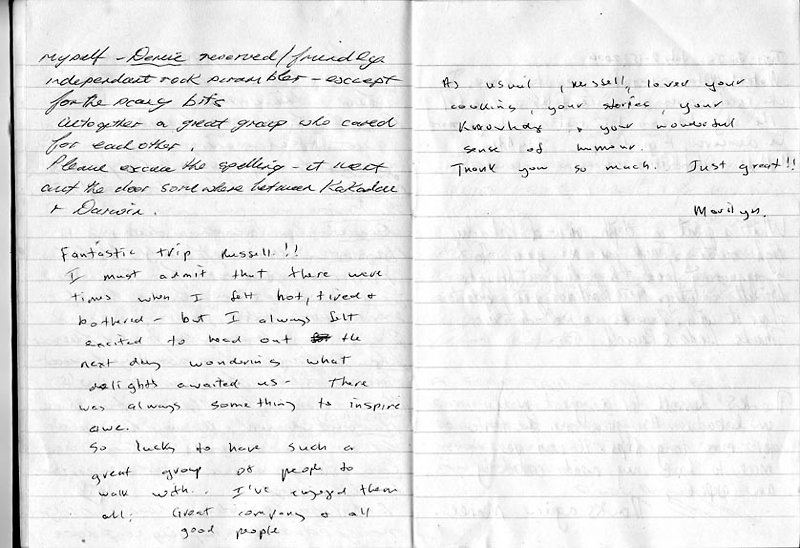 myself - Denise reserved/friendly
independant rock scrambler - except
for the scary bits
Altogether a great group who cared
for each other.
Please excuse the spelling - it went
out the door somewhere between Kakadu
+ Darwin.
Fantastic trip Russell!!
I must admit that there were
times when I felt hot, tired +
bothered - but I always felt
excited to head out the
next day wondering what
delights awaited us - There
was always something to inspire
awe.
So lucky to have such a
great group of people to
walk with. I've enjoyed them
all: Great company & all
good people
As usual, Russell, loved your
cooking, your stories, your
knowledge & your wonderful
sense of humour.
Thank you so much. Just great!!
Marilyn.